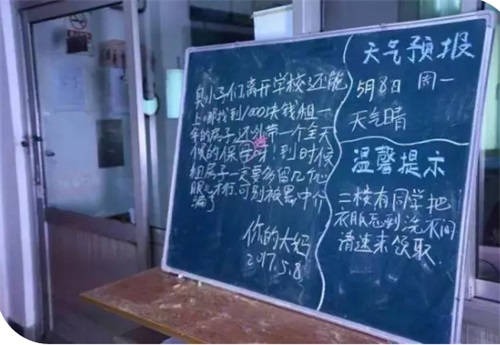 臭小子们,离开学校还能
上哪找到1000块钱租一
年的房子,还外带一个全天
候的保母呀!到时候
租房子一定要多留几个心
眼儿才行,可别被黑中介
骗了
你的大妈
2017.5.8
天气预报
5月8日 周一
天气晴
温馨提示
二楼有同学把
衣服忘到洗衣间
请速来领取.